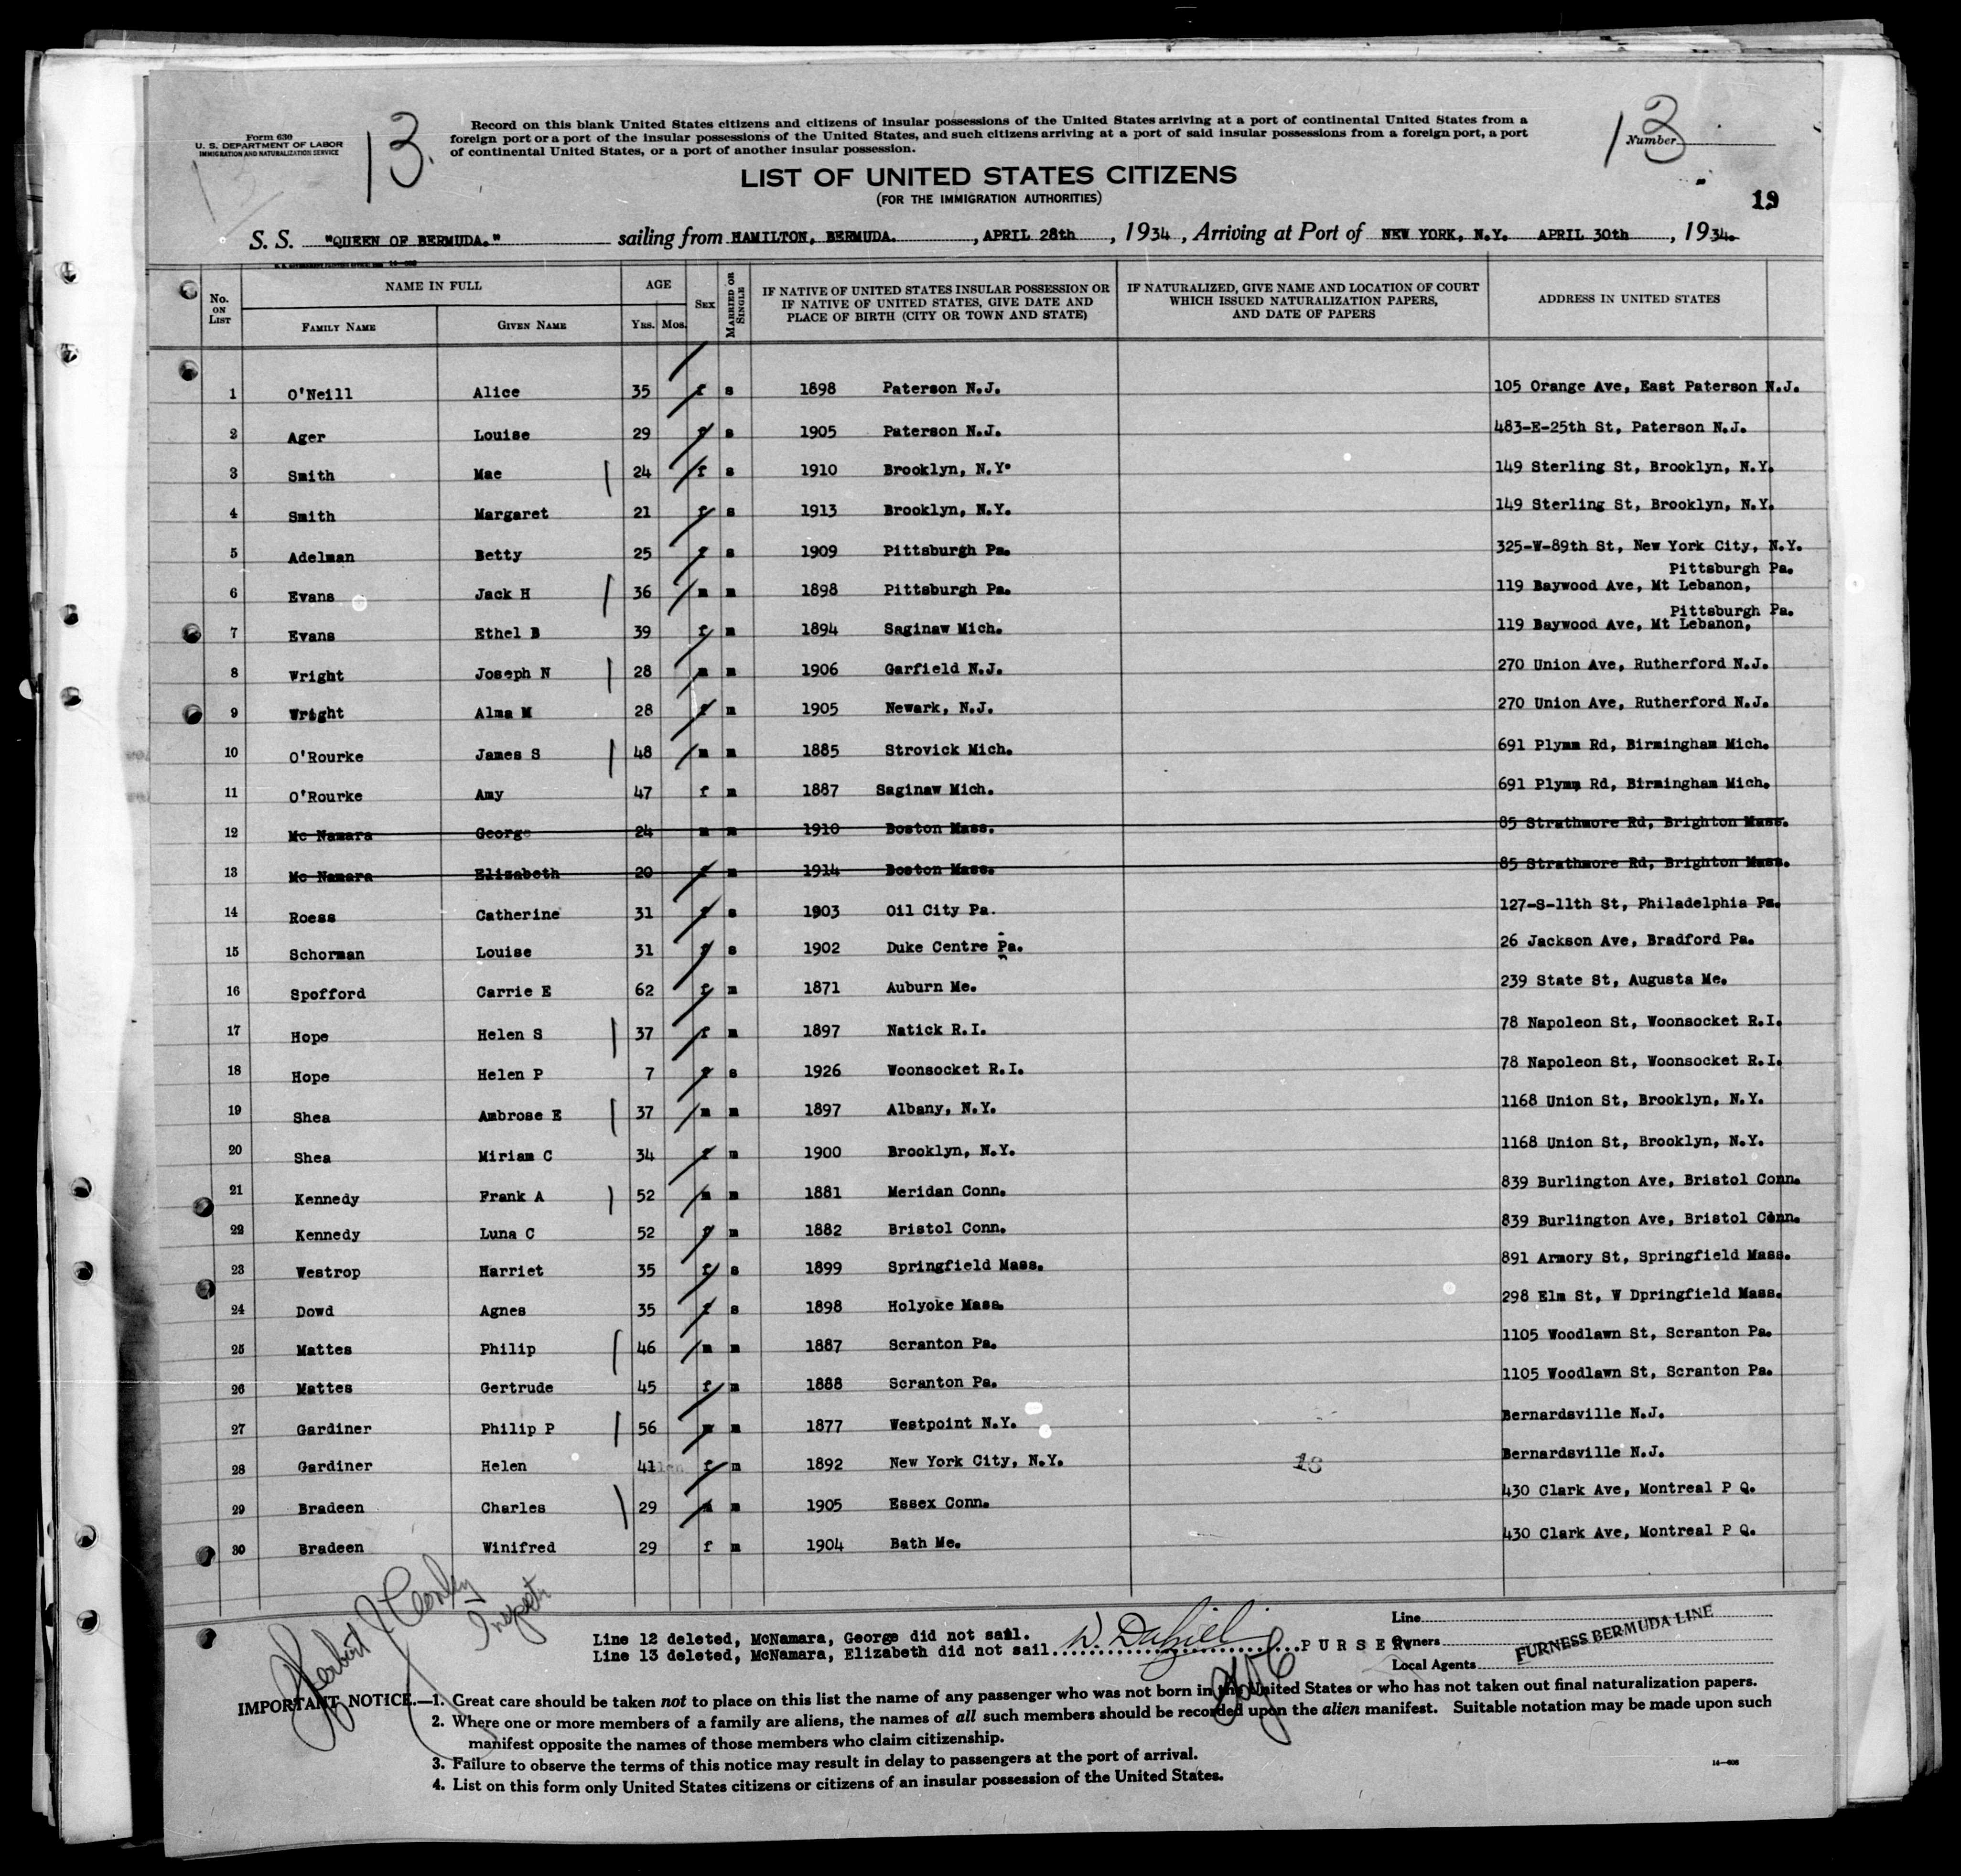 Form 630
U. S. DEPARTMENT OF LABOR
IMMIGRATION AND NATURALIZATION SERVICE
13.
Record on this blank United States citizens and citizens of insular possessions of the United States arriving at a port of continental United States from a
foreign port or a port of the insular possessions of the United States, and such citizens arriving at a port of said insular possessions from a foreign port, a port
of continental United States, or a port of another insular possession.
Number 13
LIST OF UNITED STATES CITIZENS
(FOR THE IMMIGRATION AUTHORITIES)
19
S. S. "QUEEN OF BERMUDA." sailing from HAMILTON, BERMUDA. , APRIL 28th , 1934 , Arriving at Port of NEW YORK, N.Y. APRIL 30th , 1934.
No. ON LIST
NAME IN FULL
FAMILY NAME GIVEN NAME
AGE
YRS. MOS.
SEX
MARRIED OR SINGLE
IF NATIVE OF UNITED STATES INSULAR POSSESSION OR
IF NATIVE OF UNITED STATES, GIVE DATE AND
PLACE OF BIRTH (CITY OR TOWN AND STATE)
IF NATURALIZED, GIVE NAME AND LOCATION OF COURT
WHICH ISSUED NATURALIZATION PAPERS,
AND DATE OF PAPERS
ADDRESS IN UNITED STATES
1 O'Neill Alice 35 f s 1898 Paterson N.J. 105 Orange Ave, East Paterson N.J.
2 Ager Louise 29 f s 1905 Paterson N.J. 483-E-25th St, Paterson N.J.
3 Smith Mae 24 f s 1910 Brooklyn, N.Y. 149 Sterling St, Brooklyn, N.Y.
4 Smith Margaret 21 f s 1913 Brooklyn, N.Y. 149 Sterling St, Brooklyn, N.Y.
5 Adelman Betty 25 f s 1909 Pittsburgh Pa. 325-W-89th St, New York City, N.Y.
Pittsburgh Pa.
6 Evans Jack H 36 m m 1898 Pittsburgh Pa. 119 Baywood Ave, Mt Lebanon,
Pittsburgh Pa.
7 Evans Ethel B 39 f m 1894 Saginaw Mich. 119 Baywood Ave, Mt Lebanon,
8 Wright Joseph N 28 m m 1906 Garfield N.J. 270 Union Ave, Rutherford N.J.
9 Wright Alma M 28 f m 1905 Newark, N.J. 270 Union Ave, Rutherford N.J.
10 O'Rourke James S 48 m m 1885 Strovick Mich. 691 Plymm Rd, Birmingham Mich.
11 O'Rourke Amy 47 f m 1887 Saginaw Mich. 691 Plymm Rd, Birmingham Mich.
12 Mc Namara George 24 m m 1910 Boston Mass. 85 Strathmore Rd, Brighton Mass.
13 Mc Namara Elizabeth 20 f m 1914 Boston Mass. 85 Strathmore Rd, Brighton Mass.
14 Roess Catherine 31 f s 1903 Oil City Pa. 127-S-11th St, Philadelphia Pa.
15 Schorman Louise 31 f s 1902 Duke Centre Pa. 26 Jackson Ave, Bradford Pa.
16 Spofford Carrie E 62 f m 1871 Auburn Me. 239 State St, Augusta Me.
17 Hope Helen S 37 f m 1897 Natick R.I. 78 Napoleon St, Woonsocket R.I.
18 Hope Helen P 7 f s 1926 Woonsocket R.I. 78 Napoleon St, Woonsocket R.I.
19 Shea Ambrose E 37 m m 1897 Albany, N.Y. 1168 Union St, Brooklyn, N.Y.
20 Shea Miriam C 34 f m 1900 Brooklyn, N.Y. 1168 Union St, Brooklyn, N.Y.
21 Kennedy Frank A 52 m m 1881 Meridan Conn. 839 Burlington Ave, Bristol Conn.
22 Kennedy Luna C 52 f m 1882 Bristol Conn. 839 Burlington Ave, Bristol Conn.
23 Westrop Harriet 35 f s 1899 Springfield Mass. 891 Armory St, Springfield Mass.
24 Dowd Agnes 35 f s 1898 Holyoke Mass. 298 Elm St, W Dpringfield Mass.
25 Mattes Philip 46 m m 1887 Scranton Pa. 1105 Woodlawn St, Scranton Pa.
26 Mattes Gertrude 45 f m 1888 Scranton Pa. 1105 Woodlawn St, Scranton Pa.
27 Gardiner Philip P 56 m m 1877 Westpoint N.Y. Bernardsville N.J.
28 Gardiner Helen 41 f m 1892 New York City, N.Y. 18 Bernardsville N.J.
29 Bradeen Charles 29 m m 1905 Essex Conn. 430 Clark Ave, Montreal P Q.
30 Bradeen Winifred 29 f m 1904 Bath Me. 430 Clark Ave, Montreal P Q.
Line 12 deleted, McNamara, George did not sail.
Line 13 deleted, McNamara, Elizabeth did not sail. PURSER
Line
Owners
Local Agents
FURNESS BERMUDA LINE
IMPORTANT NOTICE.—1. Great care should be taken not to place on this list the name of any passenger who was not born in the United States or who has not taken out final naturalization papers.
2. Where one or more members of a family are aliens, the names of all such members should be recorded upon the alien manifest. Suitable notation may be made upon such
manifest opposite the names of those members who claim citizenship.
3. Failure to observe the terms of this notice may result in delay to passengers at the port of arrival.
4. List on this form only United States citizens or citizens of an insular possession of the United States.